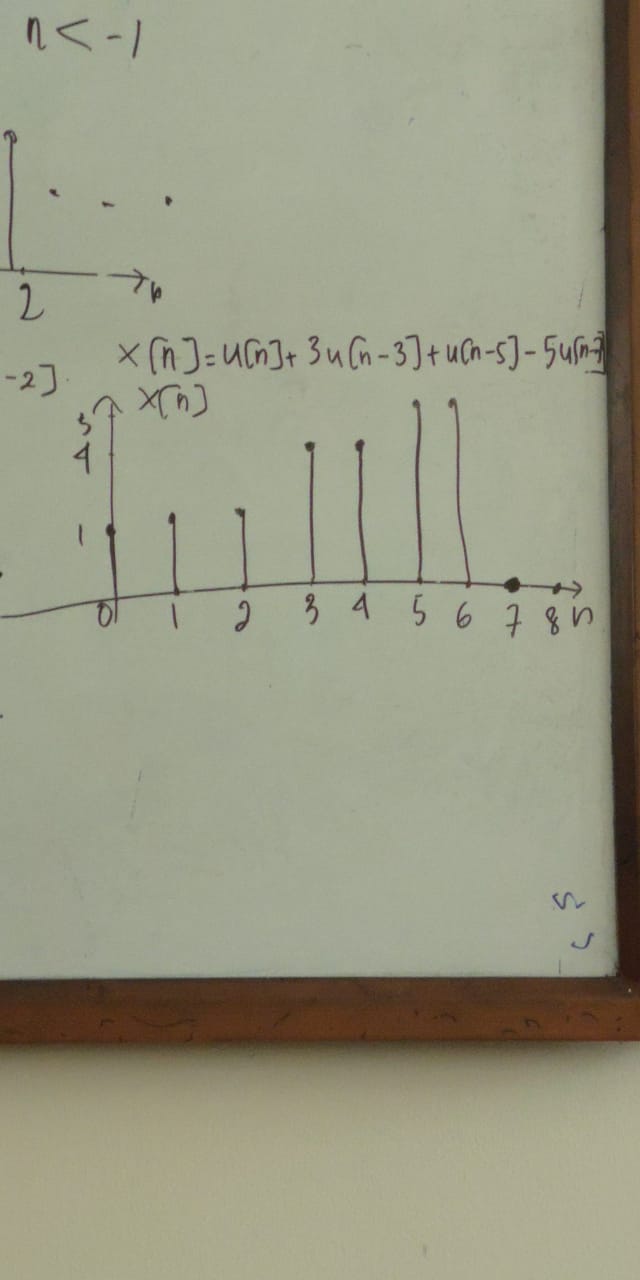 n < -1
2
x[n] = u[n] + 3u[n-3] + u[n-5] - 5u[n-7]
-2]
x[n]
5
4
1
0 1 2 3 4 5 6 7 8 n